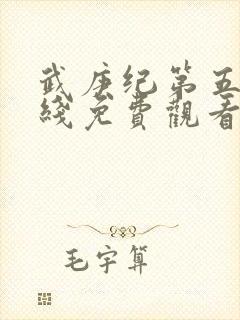 武庚纪第五
綫免費觀看
毛宇算